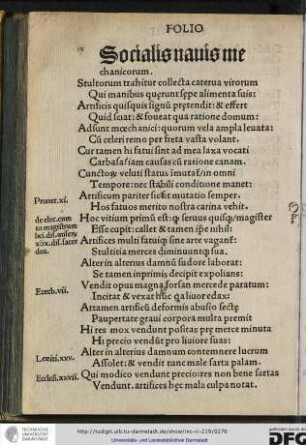 FOLIO
Socialis nauis me
chanicorum.
Stultorum trahitur collecta caterua virorum
Qui manibus quęrunt sępe alimenta suis:
Artificis quisquis signũ prętendit: & effert
Quid sciat: & foueat qua ratione domum:
Adsunt mœchanici: quorum vela ampla leuata:
Cũ celeri remo per freta vasta volant.
Cur tamen hi fatui sint ad mea laxa vocati
Carbasa: iam causas cũ ratione canam.
Cuncto& veluti status imutat in omni
Tempore: nec stabili conditione manet:
Artificum pariter sic fit mutatio semper.
Hos fatuos merito nostra carina vehit.
Hoc vitium primũ est: seruus quisq magister
Esse cupit: callet & tamen ipse nihil:
Artifices multi fatuiq sine arte vagant
Stultitia merces diminuuntq sua.
Alter in alterius damnũ sudore laborat:
Se tamen inprimis decipit expolians:
Vendit opus magna forsan mercede paratum:
Incitat & vexat huc liuor edax:
Attamen artificũ deformis abusio sectę
Paupertate graui corpora multa premit
Hi res mox vendunt positas pre merce minuta
Hi precio vendũt pro liuiore suas:
Alter in alterius damnum contemnere lucrum
Assolet: & vendit tunc male sarta palam.
Qui modico vendunt preciores non bene sartas
Vendunt. artifices hęc mala culpa notat.
Prouer. xi.
de elec. com
Ezech. vii.
Leuiti. xxv.
Ecclesi. xxvii.
TECHNISCHE
UNIVERSITÄT
DARMSTADT
http://tudigit.ulb.tu-darmstadt.de/show/inc-ii-210/0276
Universitäts- und Landesbibliothek Darmstadt
DFG